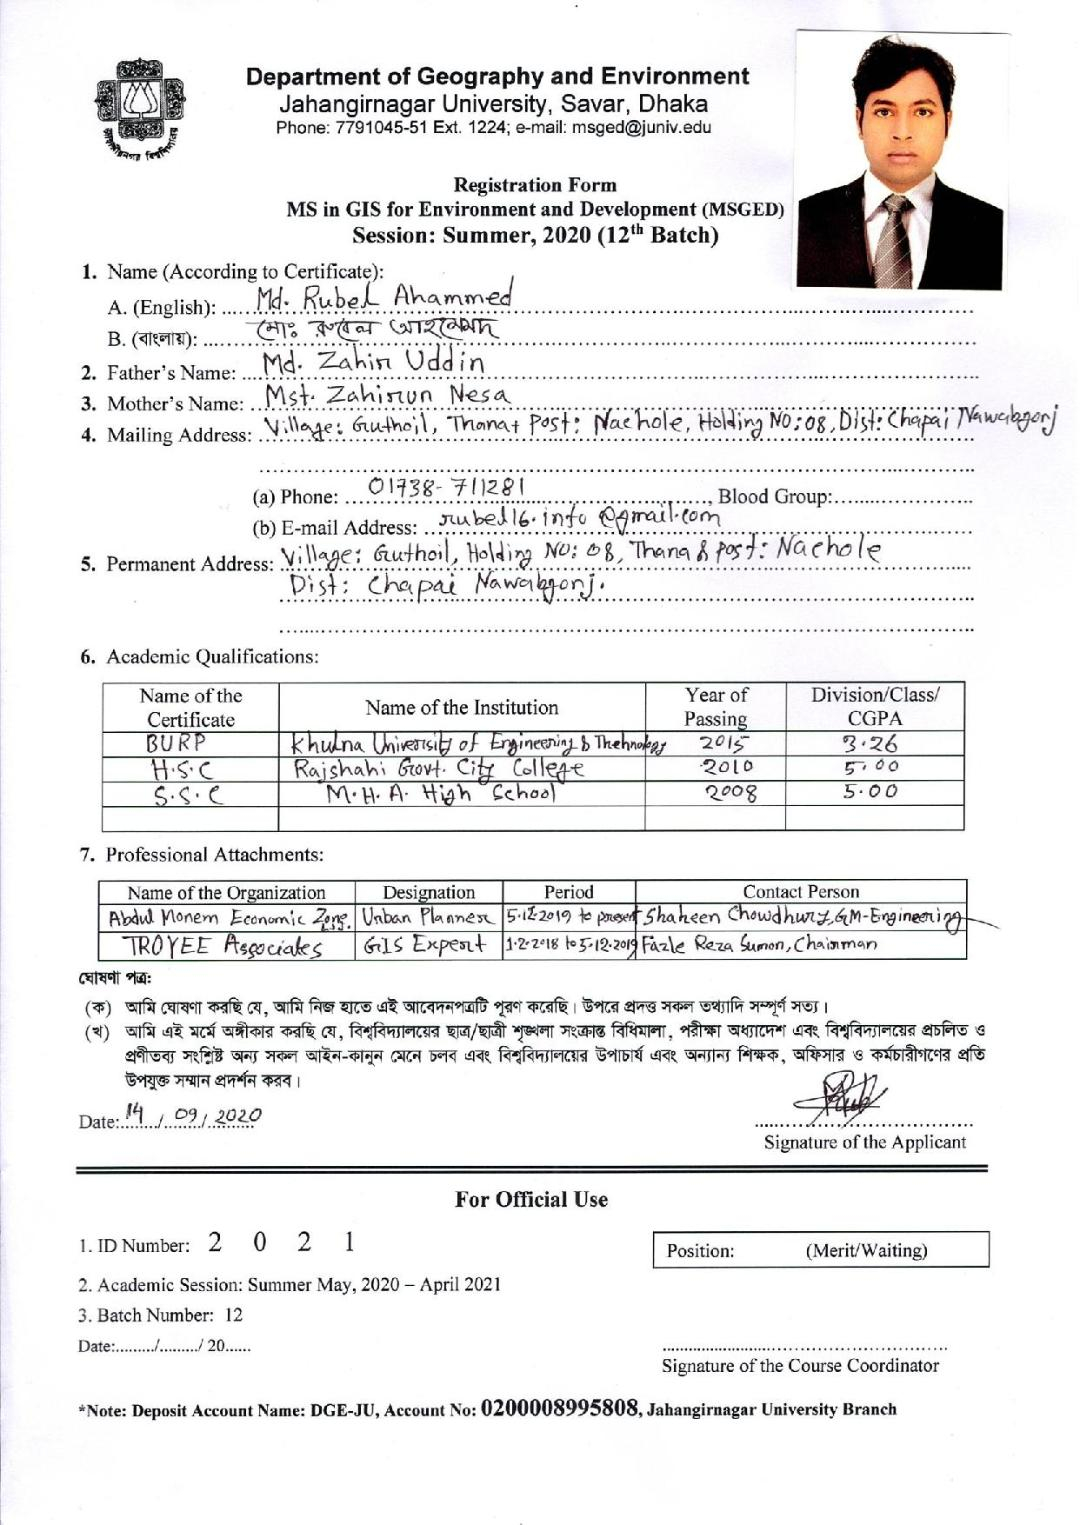 জাহাঙ্গীরনগর বিশ্ববিদ্যালয়
Department of Geography and Environment
Jahangirnagar University, Savar, Dhaka
Phone: 7791045-51 Ext. 1224; e-mail: msged@juniv.edu
Registration Form
MS in GIS for Environment and Development (MSGED)
Session: Summer, 2020 (12th Batch)
1. Name (According to Certificate):
A. (English): Md. Rubel Ahammed
B. (বাংলায়): মোঃ রুবেল আহম্মেদ
2. Father's Name: Md. Zahir Uddin
3. Mother's Name: Mst. Zahirun Nesa
4. Mailing Address: Village: Guthoil, Thana+ Post: Nachole, Holding NO:08, Dist: Chapai Nawabgonj
(a) Phone: 01738-711281, Blood Group:
(b) E-mail Address: rubel16.info@gmail.com
5. Permanent Address: Village: Guthoil, Holding NO: 08, Thana & Post: Nachole
Dist: Chapai Nawabgonj.
6. Academic Qualifications:
Name of the Certificate Name of the Institution Year of Passing Division/Class/ CGPA
BURP Khulna University of Engineering & Thehnology 2015 3.26
H.S.C Rajshahi Govt. City College 2010 5.00
S.S.C M.H.A. High School 2008 5.00
7. Professional Attachments:
Name of the Organization Designation Period Contact Person
Abdul Monem Economic Zone Urban Planner 5-12-2019 to present Shaheen Chowdhury, GM-Engineering
TROYEE Associates GIS Expert 1-2-2018 to 5-12-2019 Fazle Reza Sumon, Chairman
ঘোষণা পত্র:
(ক) আমি ঘোষণা করছি যে, আমি নিজ হাতে এই আবেদনপত্রটি পূরণ করেছি। উপরে প্রদত্ত সকল তথ্যাদি সম্পূর্ণ সত্য।
(খ) আমি এই মর্মে অঙ্গীকার করছি যে, বিশ্ববিদ্যালয়ের ছাত্র/ছাত্রী শৃঙ্খলা সংক্রান্ত বিধিমালা, পরীক্ষা অধ্যাদেশ এবং বিশ্ববিদ্যালয়ের প্রচলিত ও
প্রণীতব্য সংশ্লিষ্ট অন্য সকল আইন-কানুন মেনে চলব এবং বিশ্ববিদ্যালয়ের উপাচার্য এবং অন্যান্য শিক্ষক, অফিসার ও কর্মচারীগণের প্রতি
উপযুক্ত সম্মান প্রদর্শন করব।
Date: 14/09/2020
Signature of the Applicant
For Official Use
1. ID Number: 2 0 2 1
Position: (Merit/Waiting)
2. Academic Session: Summer May, 2020 – April 2021
3. Batch Number: 12
Date:........./........./ 20......
Signature of the Course Coordinator
*Note: Deposit Account Name: DGE-JU, Account No: 0200008995808, Jahangirnagar University Branch